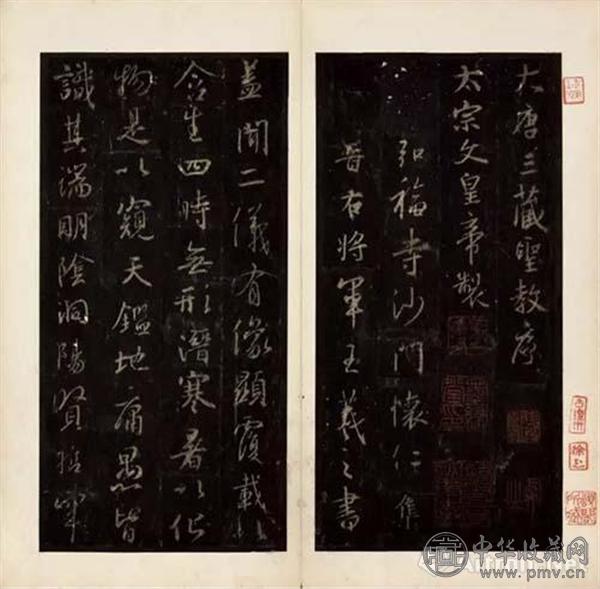 大唐三藏聖教序
太宗文皇帝製
弘福寺沙門懷仁集
晉右將軍王羲之書
蓋聞二儀有像顯覆載以
含生四時無形潛寒暑以化
物是以窺天鑑地庸愚皆
識其端明陰洞陽賢哲罕
中华收藏网
www.pmv.cn